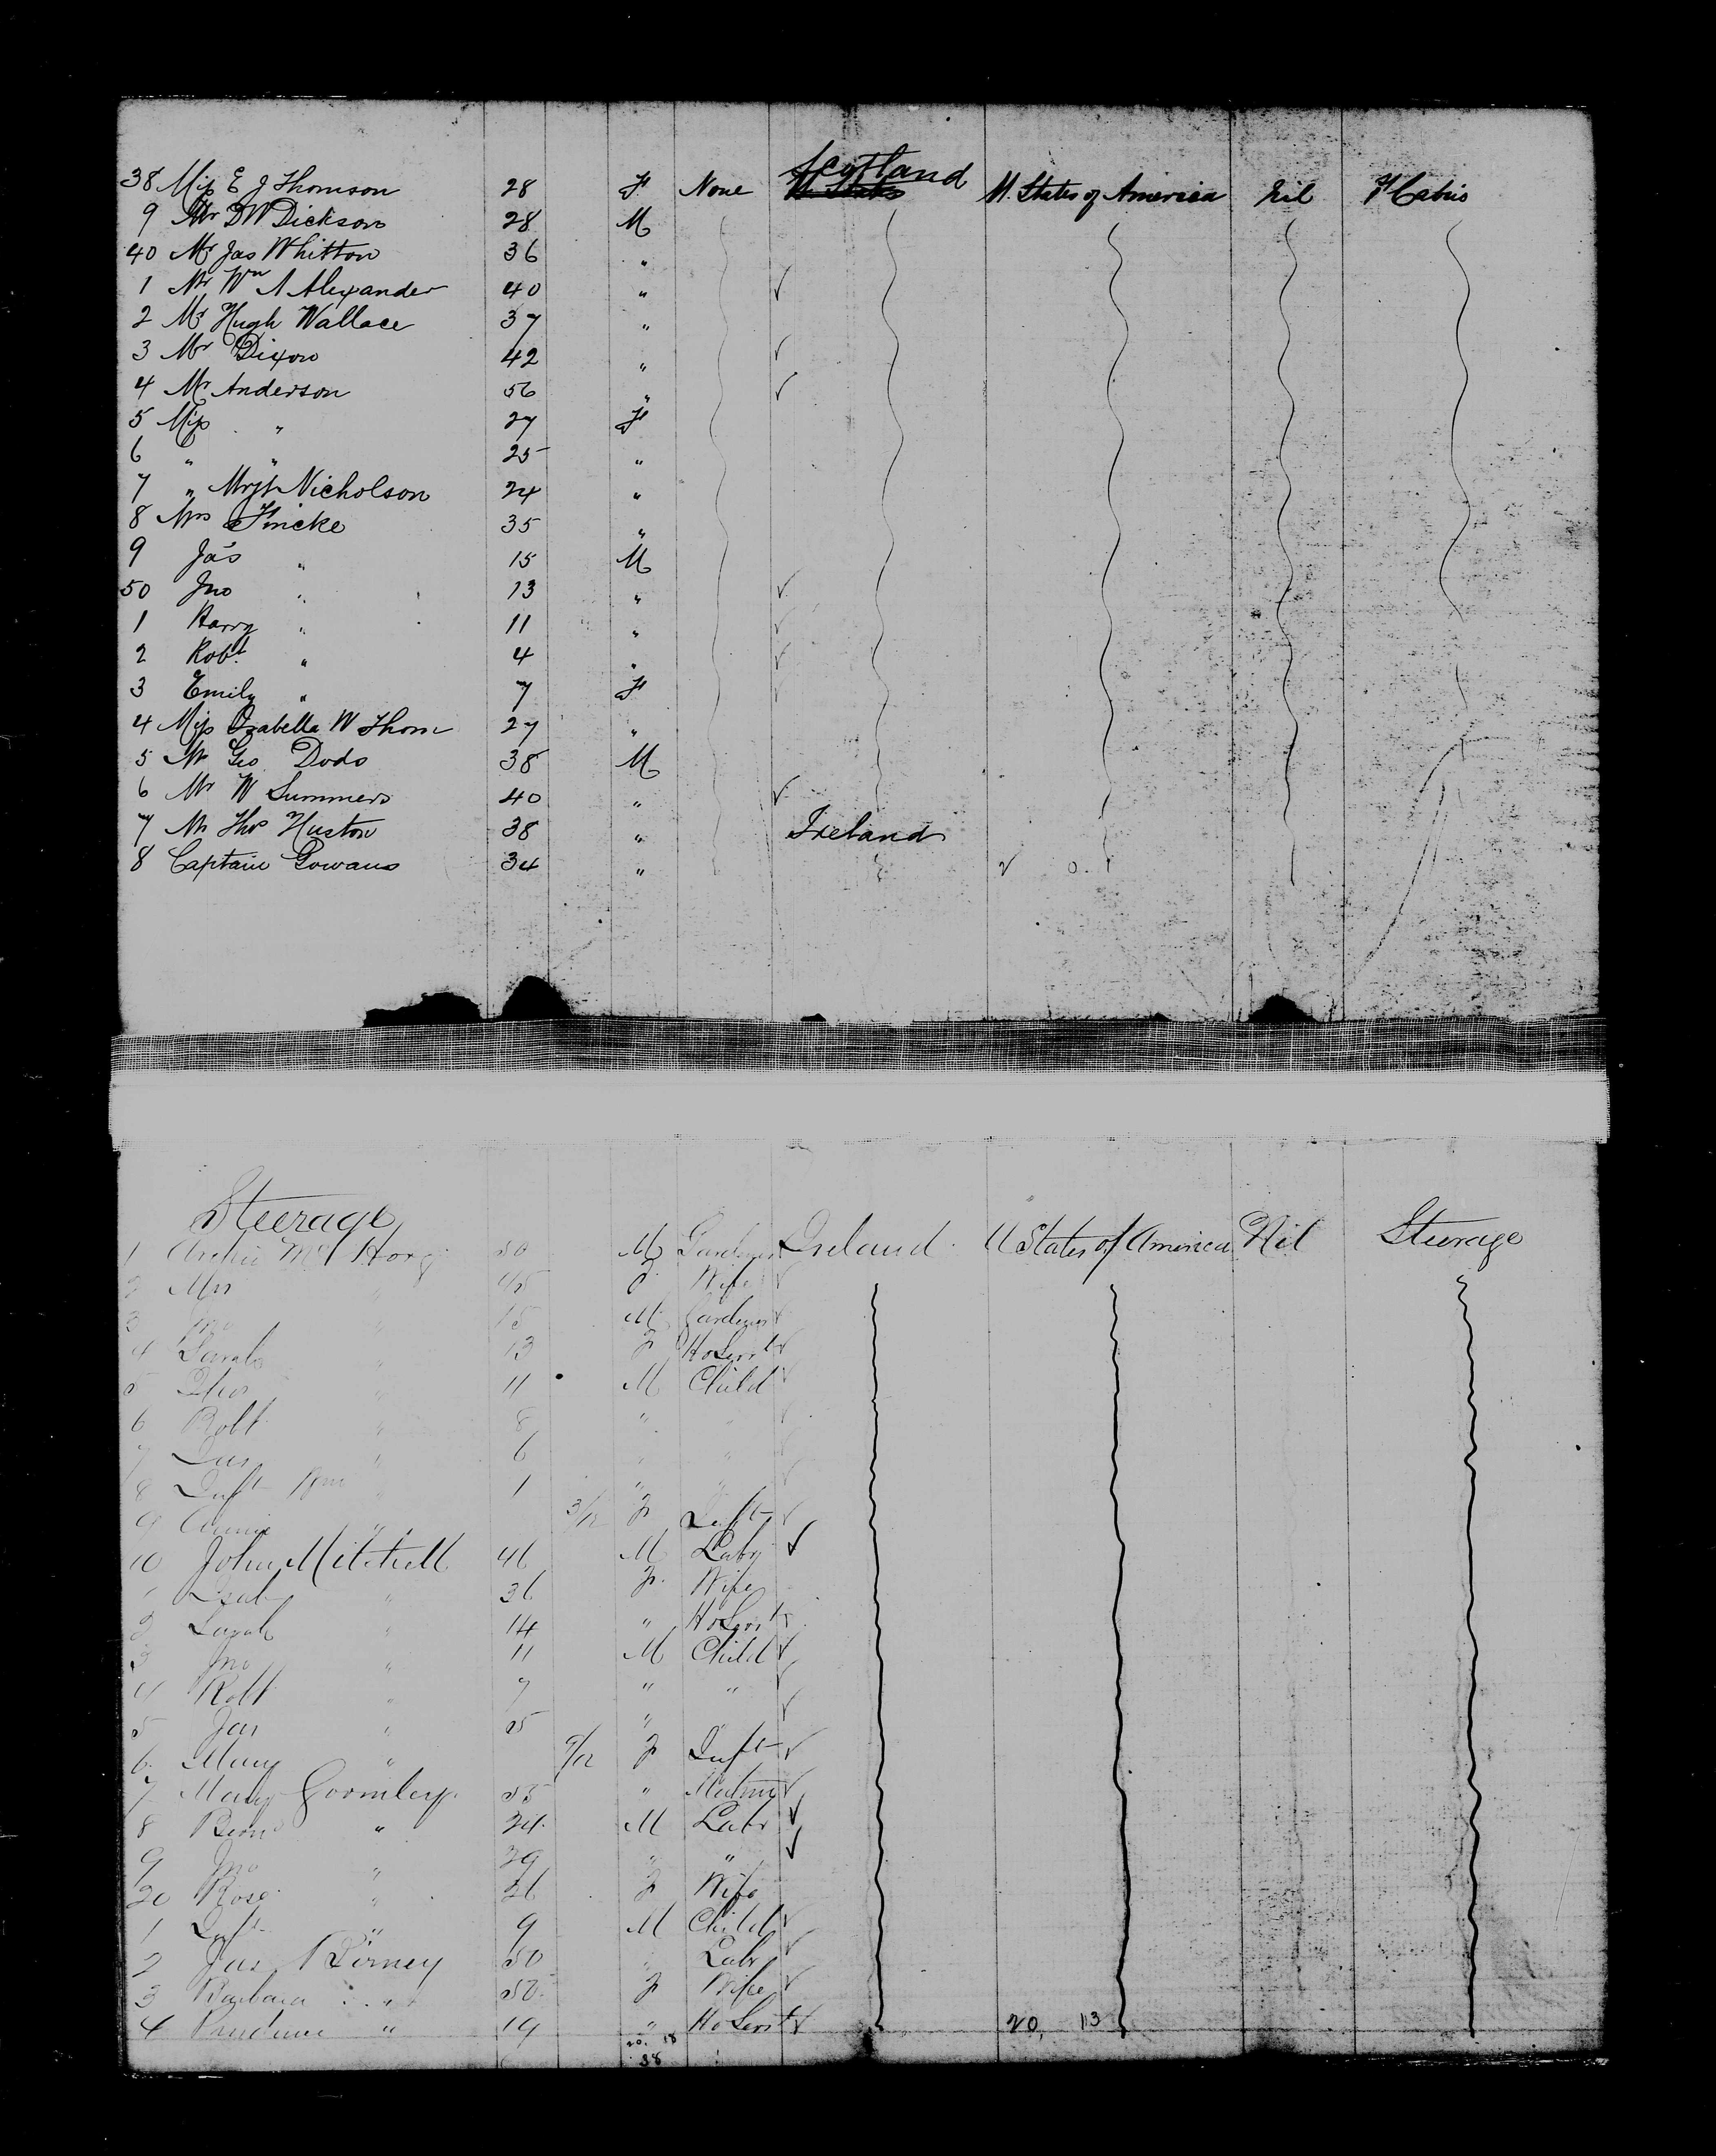 38 Miss E J Thomson 28 F None Scotland U. States of America Nil F Cabin
9 Mr D W Dickson 28 M
40 Mr Jas Whitton 36 "
1 Mr Wm A Alexander 40 "
2 Mr Hugh Wallace 37 "
3 Mr Dixon 42 "
4 Mr Anderson 56 "
5 Miss " 27 F
6 " " 25 "
7 " Nicholson 24 "
8 Mrs Fincke 35 "
9 Jas " 15 M
50 Jno " 13 "
1 Harry " 11 "
2 Robt " 4 "
3 Emily " 7 F
4 Miss Isabella W Thom 27 "
5 Mr Geo Dods 38 M
6 Mr W Summers 40 "
7 Mr Thos Huston 38 " Ireland
8 Captain Gowans 34 "
Steerage
1 Archie 50 M Gardener Ireland U States of America Nil Steerage
2 Mrs " 45 F Wife
3 " 15 M Gardener
4 Sarah " 13 F Ho Servt
5 Thos " 11 M Child
6 Robt " 8 " "
7 " 6 " "
8 Inft Wm " 1 " "
9 Annie " 3/12 F Inft
10 John Mitchell 46 M Labr
1 Isab " 36 F Wife
2 Sarah " 14 " Ho Servt
3 Jno " 11 M Child
4 Robt " 7 " "
5 Jas " "
6 Mary " 9/12 F Inft
7 Mary Goomley 55 "
8 " 24 M Labr
9 Jno " 29 " "
20 Rose " 26 F Wife
1 " 9 M Child
2 Jas Birney 50 " Labr
3 Barbara " 50 F Wife
4 " 19 " Ho Servt 20, 13
20. 18
38